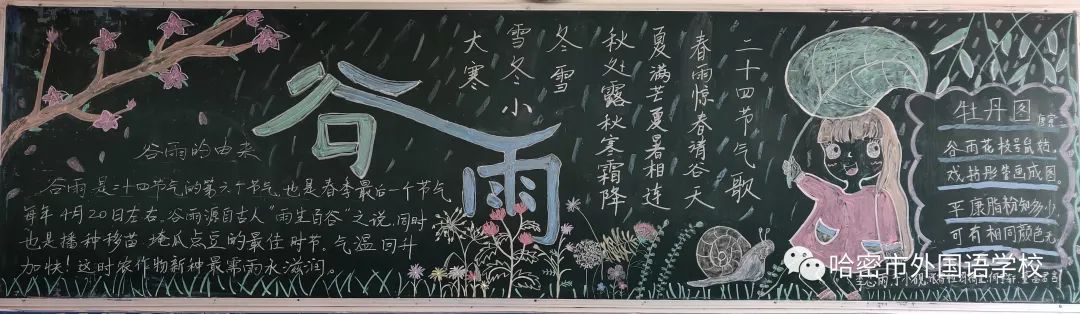 谷雨
谷雨的由来
谷雨是二十四节气的第六个节气,也是春季最后一个节气
每年4月20日左右。谷雨源自古人"雨生百谷"之说,同时
也是播种移苗 埯瓜点豆的最佳时节。气温回升
加快!这时农作物新种最需雨水滋润。
二十四节气歌
春雨惊春清谷天
夏满芒夏暑相连
秋处露秋寒霜降
冬雪
雪冬小
大寒
牡丹图 唐寅
谷雨花枝号鼠姑,
戏拈彤管画成图。
平康脂粉知多少,
可有相同颜色无
哈密市外国语学校